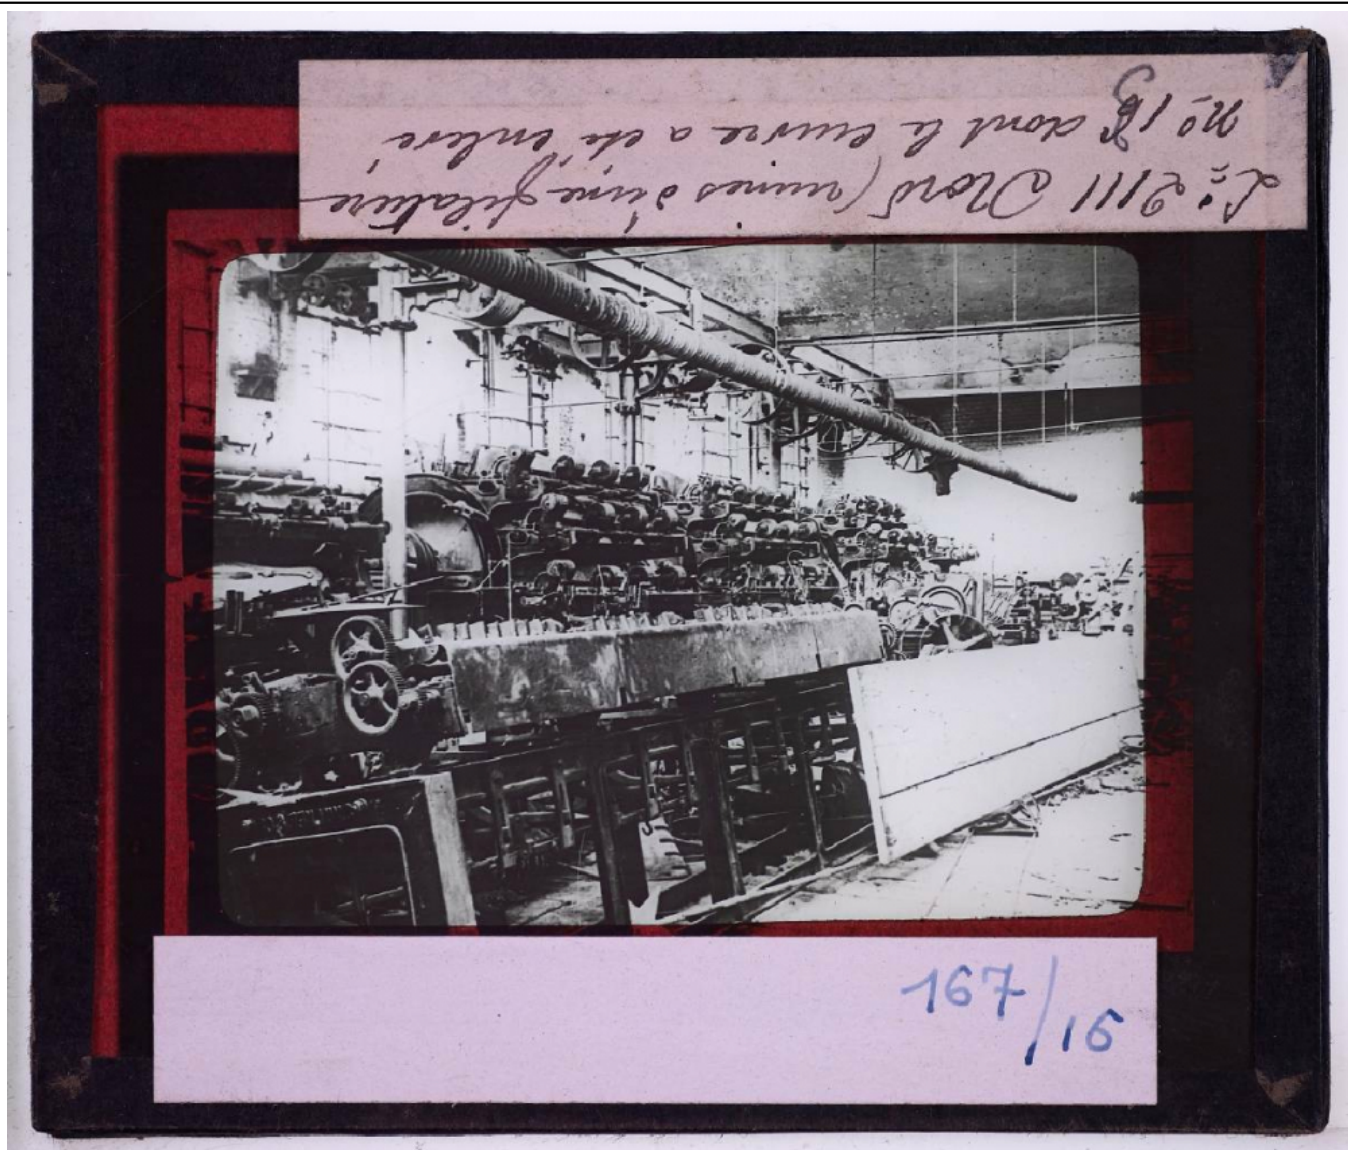 Lº 2111 Nord (ruines d'une filature
nº 16 dont le cuivre a été enlevé
167/16